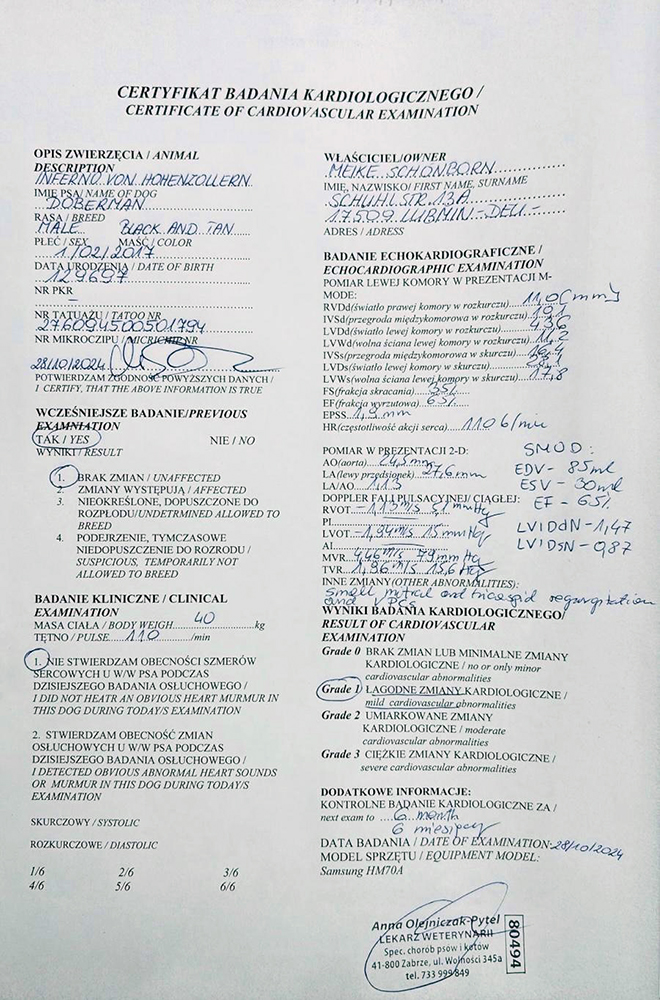 CERTYFIKAT BADANIA KARDIOLOGICZNEGO /
CERTIFICATE OF CARDIOVASCULAR EXAMINATION
OPIS ZWIERZĘCIA / ANIMAL
DESCRIPTION
INFERNO VON HOHENZOLLERN
IMIĘ PSA/ NAME OF DOG
DOBERMAN
RASA / BREED
MALE BLACK AND TAN
PŁEĆ / SEX MAŚĆ/ COLOR
1/02/2017
DATA URODZENIA / DATE OF BIRTH
129697
NR PKR
-
NR TATUAŻU / TATOO NR
276094500501794
NR MIKROCZIPU / MICRICHIP NR
28/10/2024
POTWIERDZAM ZGODNOŚĆ POWYŻSZYCH DANYCH /
I CERTIFY, THAT THE ABOVE INFORMATION IS TRUE
WCZEŚNIEJSZE BADANIE/PREVIOUS
EXAMNIATION
TAK / YES NIE / NO
WYNIKI / RESULT
1. BRAK ZMIAN / UNAFFECTED
2. ZMIANY WYSTĘPUJĄ / AFFECTED
3. NIEOKREŚLONE, DOPUSZCZONE DO
ROZPŁODU/UNDETRMINED ALLOWED TO
BREED
4. PODEJRZENIE, TYMCZASOWE
NIEDOPUSZCZENIE DO ROZRODU /
SUSPICIOUS, TEMPORARILY NOT
ALLOWED TO BREED
BADANIE KLINICZNE / CLINICAL
EXAMINATION
MASA CIAŁA / BODY WEIGH 40 kg
TĘTNO / PULSE 110 /min
1. NIE STWIERDZAM OBECNOŚCI SZMERÓW
SERCOWYCH U W/W PSA PODCZAS
DZISIEJSZEGO BADANIA OSŁUCHOWEGO /
I DID NOT HEATR AN OBVIOUS HEART MURMUR IN
THIS DOG DURING TODAY/S EXAMINATION
2. STWIERDZAM OBECNOŚĆ ZMIAN
OSŁUCHOWYCH U W/W PSA PODCZAS
DZISIEJSZEGO BADANIA OSŁUCHOWEGO /
I DETECTED OBVIOUS ABNORMAL HEART SOUNDS
OR MURMUR IN THIS DOG DURING TODAY/S
EXAMINATION
SKURCZOWY / SYSTOLIC
ROZKURCZOWE / DIASTOLIC
1/6 2/6 3/6
4/6 5/6 6/6
WŁAŚCICIEL/OWNER
MEIKE SCHÖNBORN
IMIĘ, NAZWISKO/ FIRST NAME, SURNAME
SCHUHLSTR. 13A
17509 LUBMIN-DEU-
ADRES / ADRESS
BADANIE ECHOKARDIOGRAFICZNE /
ECHOCARDIOGRAPHIC EXAMINATION
POMIAR LEWEJ KOMORY W PREZENTACJI M-
MODE:
RVDd(światło prawej komory w rozkurczu) 11,0 (mm)
IVSd(przegroda międzykomorowa w rozkurczu)
LVDd(światło lewej komory w rozkurczu) 43,6
LVWd(wolna ściana lewej komory w rozkurczu) 11,2
IVSs(przegroda międzykomorowa w skurczu)
LVDs(światło lewej komory w skurczu)
LVWs(wolna ściana lewej komory w skurczu) 17,8
FS(frakcja skracania) 35%
EF(frakcja wyrzutowa) 65%
EPSS 1,9 mm
HR(częstotliwość akcji serca) 110 b/min
POMIAR W PREZENTACJI 2-D:
AO(aorta) 24,5 mm
LA(lewy przedsionek) 27,6 mm
LA/AO 1,13
DOPPLER FALI PULSACYJNEJ/ CIĄGŁEJ:
RVOT -1,13 m/s 5,1 mmHg
PI
LVOT -1,94 m/s 15 mmHg
AI
MVR 4,46 m/s 79 mmHg
TVR 1,96 m/s 15,6 Hg
SMOD:
EDV - 85ml
ESV - 30ml
EF - 65%
LVIDdN - 1,47
LVIDsN - 0,87
INNE ZMIANY(OTHER ABNORMALITIES):
small mitral and tricuspid regurgitation
and VPCs
WYNIKI BADANIA KARDIOLOGICZNEGO/
RESULT OF CARDIOVASCULAR
EXAMINATION
Grade 0 BRAK ZMIAN LUB MINIMALNE ZMIANY
KARDIOLOGICZNE / no or only minor
cardiovascular abnormalities
Grade 1 ŁAGODNE ZMIANY KARDIOLOGICZNE /
mild cardiovascular abnormalities
Grade 2 UMIARKOWANE ZMIANY
KARDIOLOGICZNE / moderate
cardiovascular abnormalities
Grade 3 CIĘŻKIE ZMIANY KARDIOLOGICZNE /
severe cardiovascular abnormalities
DODATKOWE INFORMACJE:
KONTROLNE BADANIE KARDIOLOGICZNE ZA /
next exam to 6 month
6 miesięcy
DATA BADANIA / DATE OF EXAMINATION: 28/10/2024
MODEL SPRZĘTU / EQUIPMENT MODEL:
Samsung HM70A
Anna Olejniczak-Pytel
LEKARZ WETERYNARII
Spec. chorób psów i kotów
41-800 Zabrze, ul. Wolności 345a
tel. 733 999 849
80494